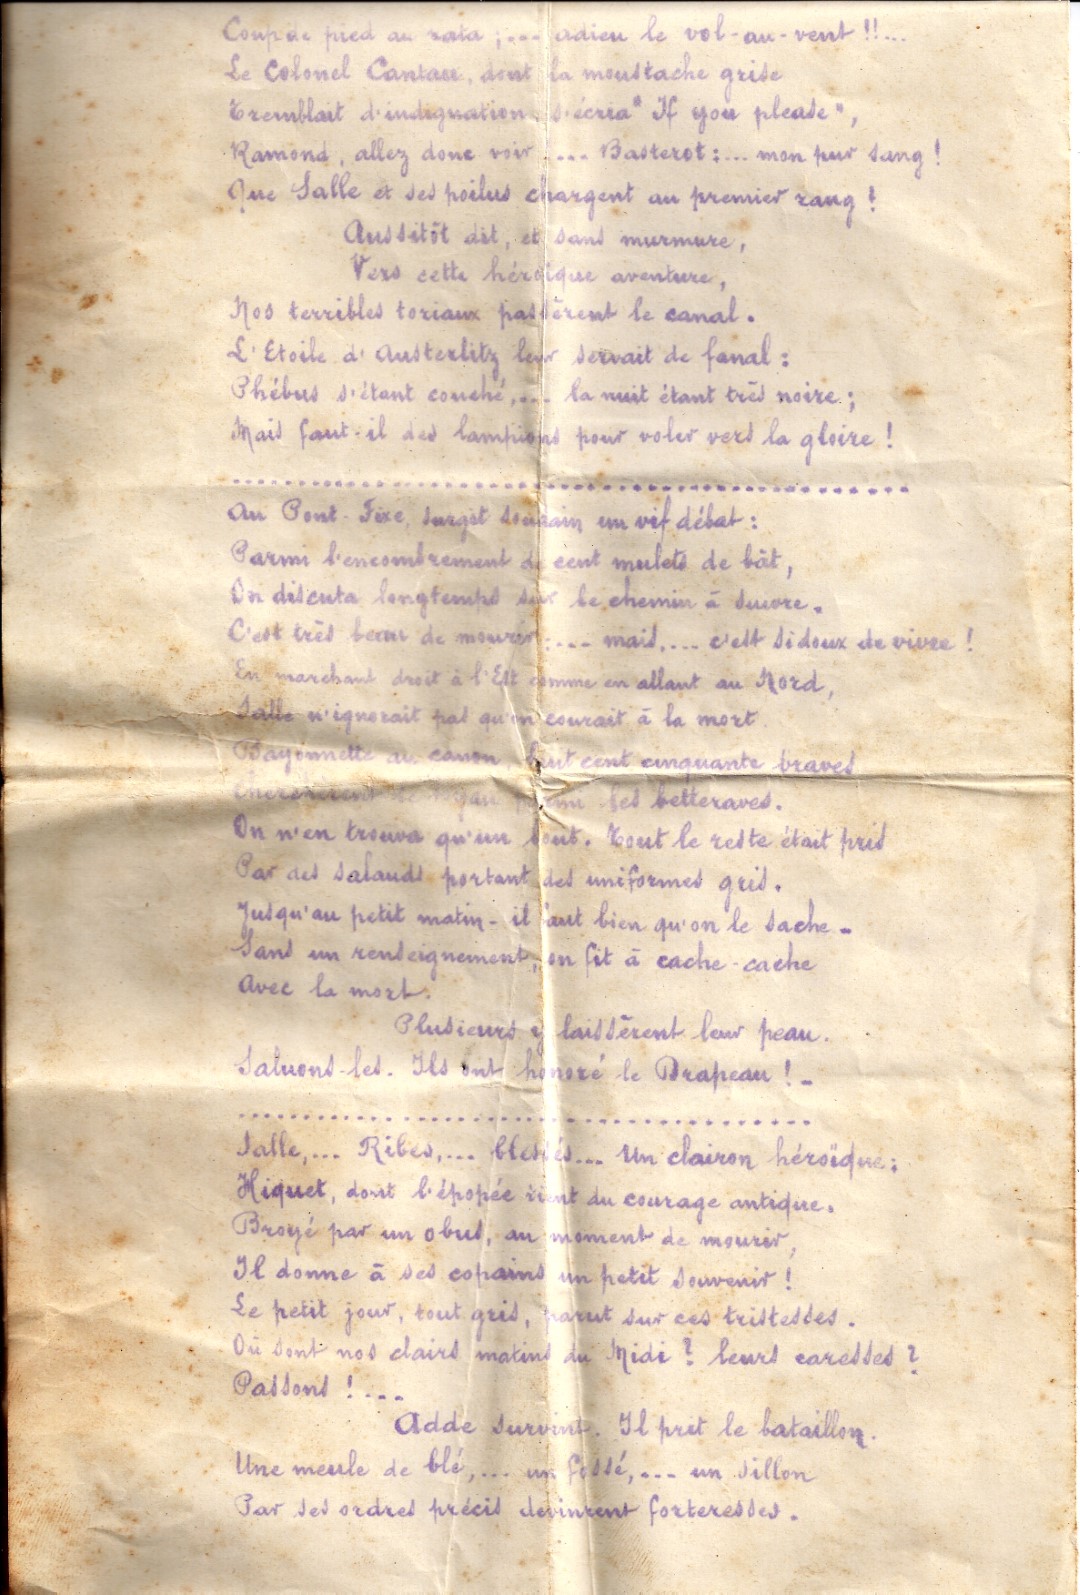 Coup de pied au rata ;... adieu le vol-au-vent !!...
Le Colonel Cantau, dont la moustache grise
Tremblait d'indignation s'écria " If you please ",
Ramond, allez donc voir .... Basterot :... mon pur sang !
Que Salle et ses poilus chargent au premier rang !
Aussitôt dit, et sans murmure,
Vers cette héroïque aventure,
Nos terribles toriaux passèrent le canal.
L'Etoile d'Austerlitz leur servait de fanal :
Phébus s'étant couché,... la nuit étant très noire ;
Mais faut-il des lampions pour voler vers la gloire !
Au Pont-Fixe, surgit soudain un vif débat :
Parmi l'encombrement de cent mulets de bât,
On discuta longtemps sur le chemin à suivre.
C'est très beau de mourir :... mais,... c'est si doux de vivre !
En marchant droit à l'Est comme en allant au Nord,
Salle n'ignorait pas qu'on courait à la mort
Bayonnette au canon, huit cent cinquante braves
les betteraves.
On n'en trouva qu'un bout. Tout le reste était pris
Par des salauds portant des uniformes gris.
Jusqu'au petit matin - il faut bien qu'on le sache -
Sans un renseignement, on fit à cache-cache
Avec la mort.
Plusieurs y laissèrent leur peau.
Saluons-les. Ils ont honoré le Drapeau ! -
Salle,... Ribes,... blessés... Un clairon héroïque ;
Hiquet, dont l'épopée tient du courage antique.
Broyé par un obus, au moment de mourir,
Il donne à ses copains un petit souvenir !
Le petit jour, tout gris, parut sur ces tristesses.
Où sont nos clairs matins du Midi ? leurs caresses ?
Passons !...
Adde survint. Il prit le bataillon.
Une meule de blé,... un fossé,... un sillon
Par ses ordres précis devinrent forteresses.